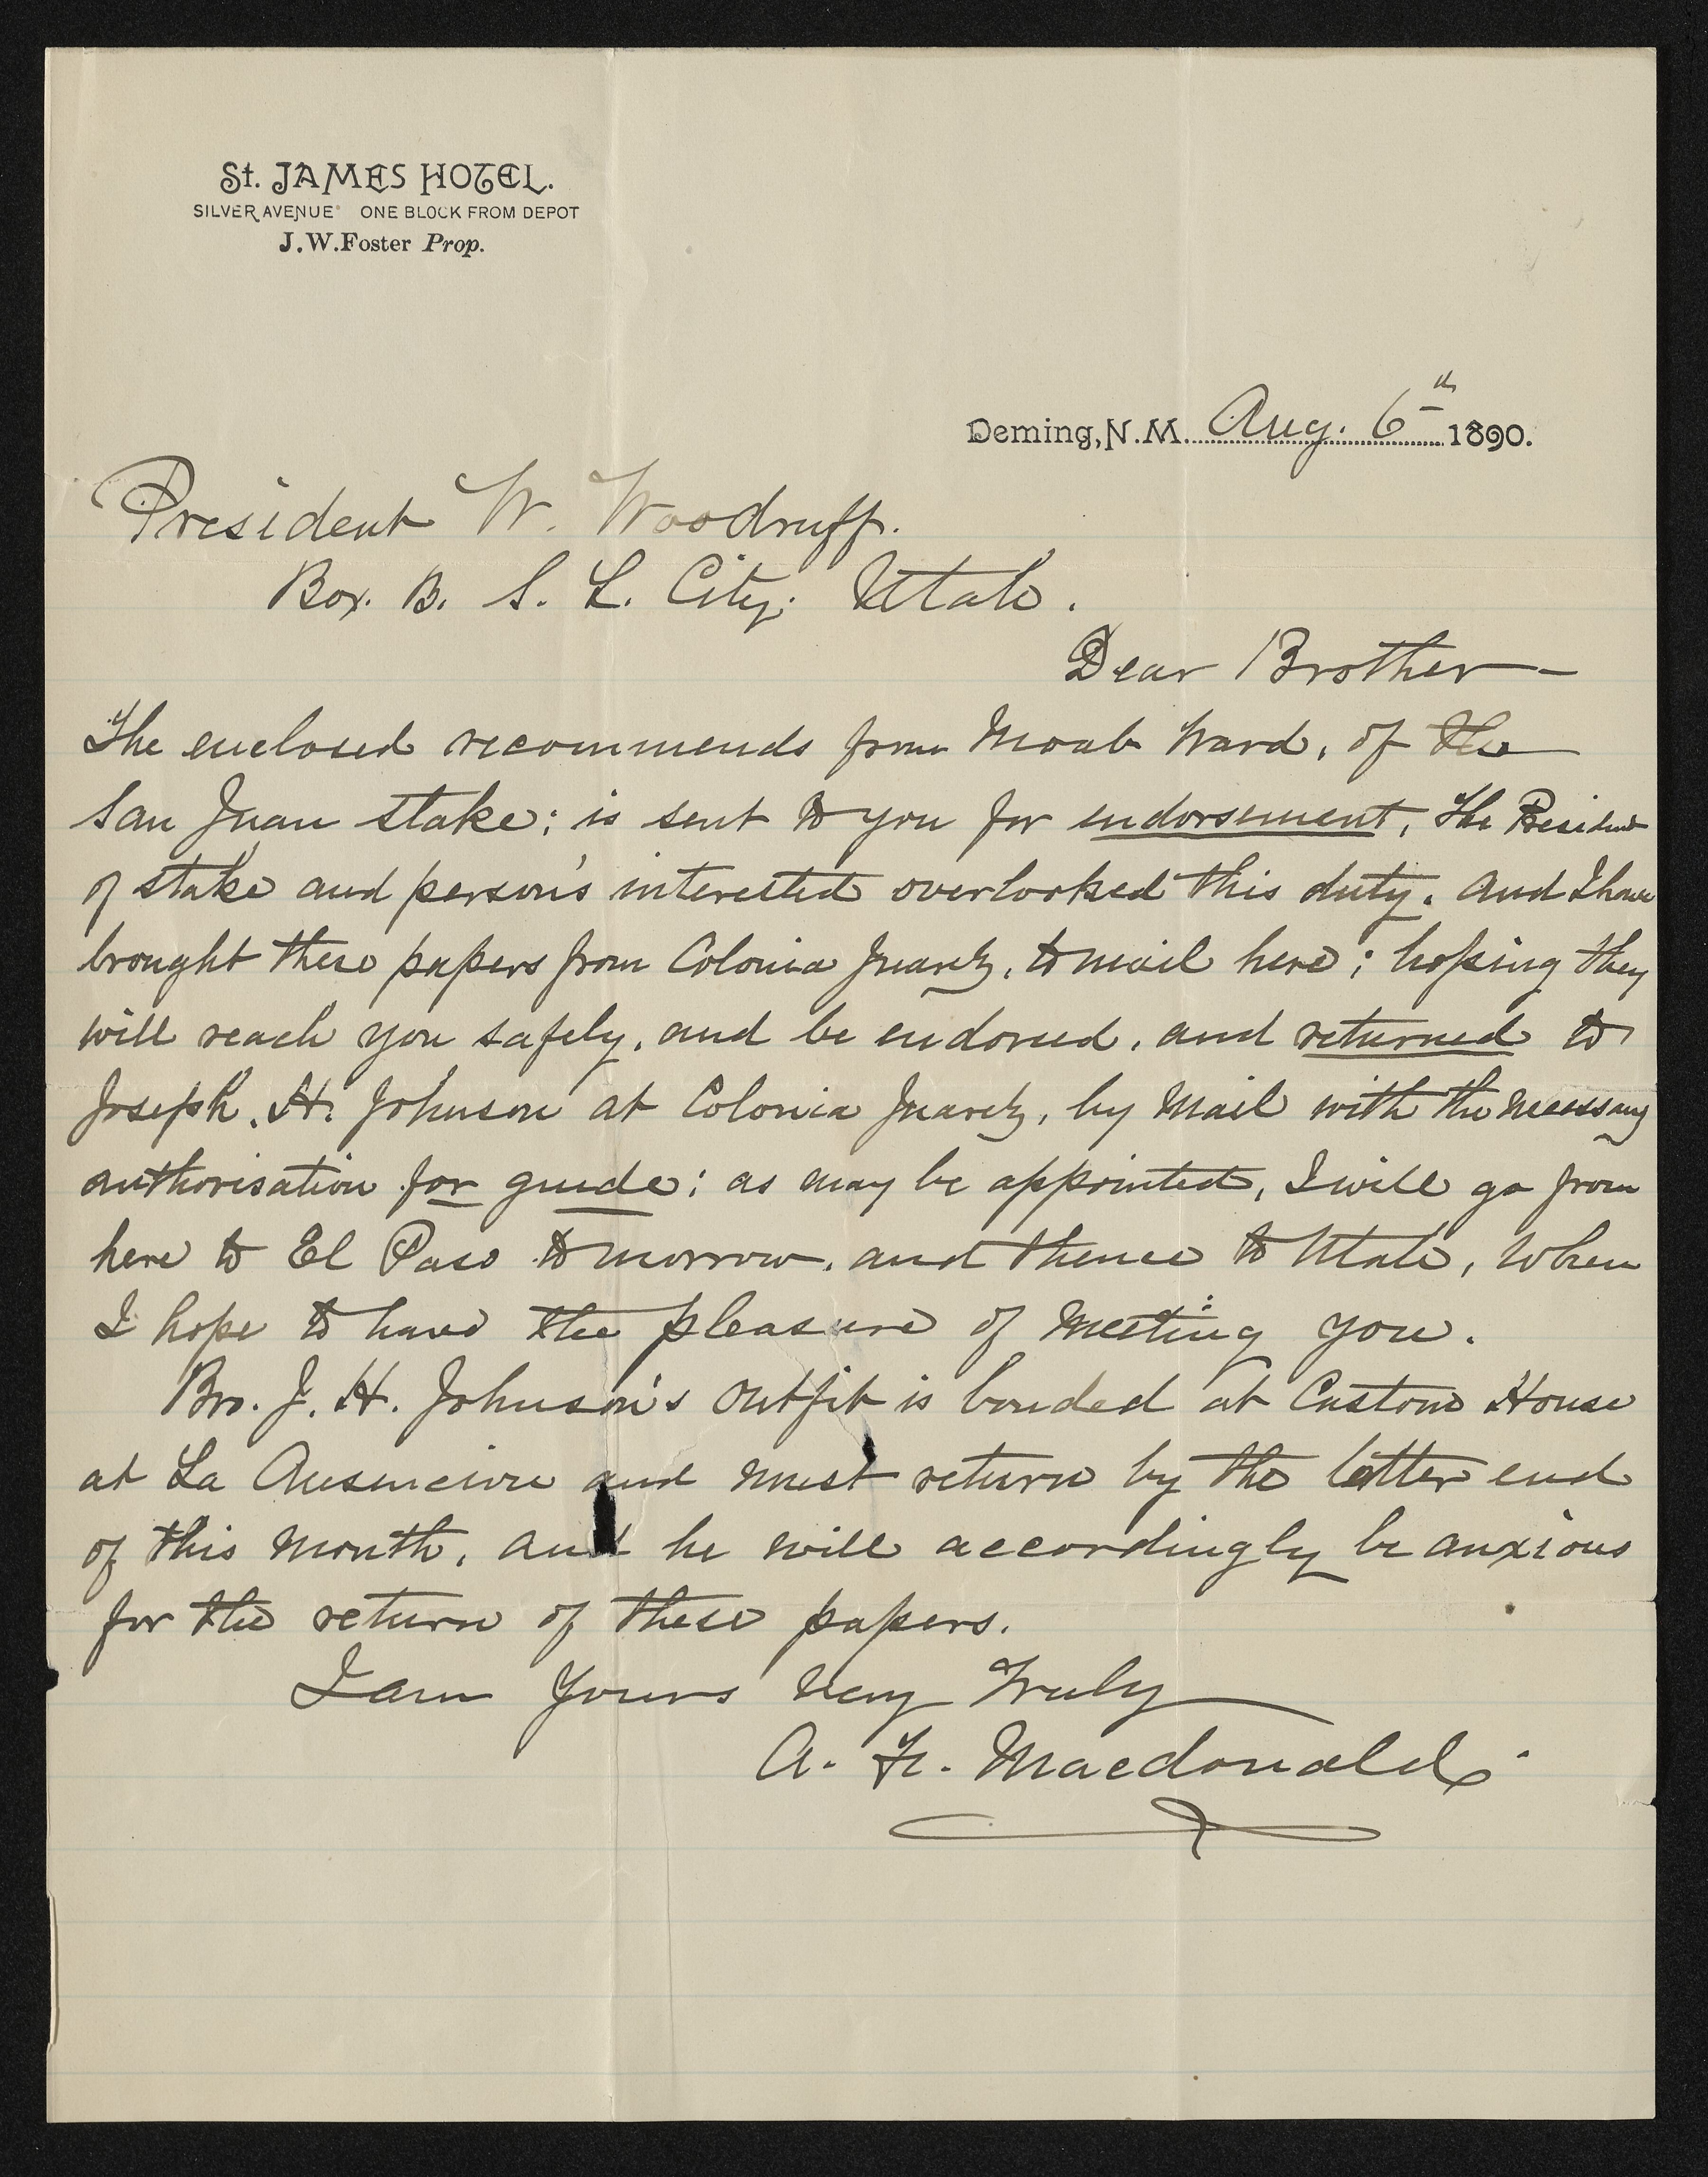 St. JAMES HOTEL.
SILVER AVENUE ONE BLOCK FROM DEPOT
J.W.Foster Prop.
Deming, N.M. Aug. 6th 1890.
President W. Woodruff.
Box. B. S. L. City; Utah.
Dear Brother—
The enclosed recommends from Moab Ward, of the
San Juan Stake; is sent to you for endorsement, The President
of Stake and person's interested overlooked this duty. And I have
brought these papers from Colonia Juarez, to mail here; hoping they
will reach you safely, and be endorsed, and returned to
Joseph. H. Johnson at Colonia Juarez, by Mail with the necessary
authorisation for guide; as may be appointed, I will go from
here to El Paso tomorrow, and thence to Utah, When
I hope to have the pleasure of Meeting you.
Bro. J. H. Johnson's Outfit is bonded at Custom House
at La Ausencion and must return by the latter end
of this Month, and he will accordingly be anxious
for the return of these papers.
I am Yours Very Truly
A. F. Macdonald.